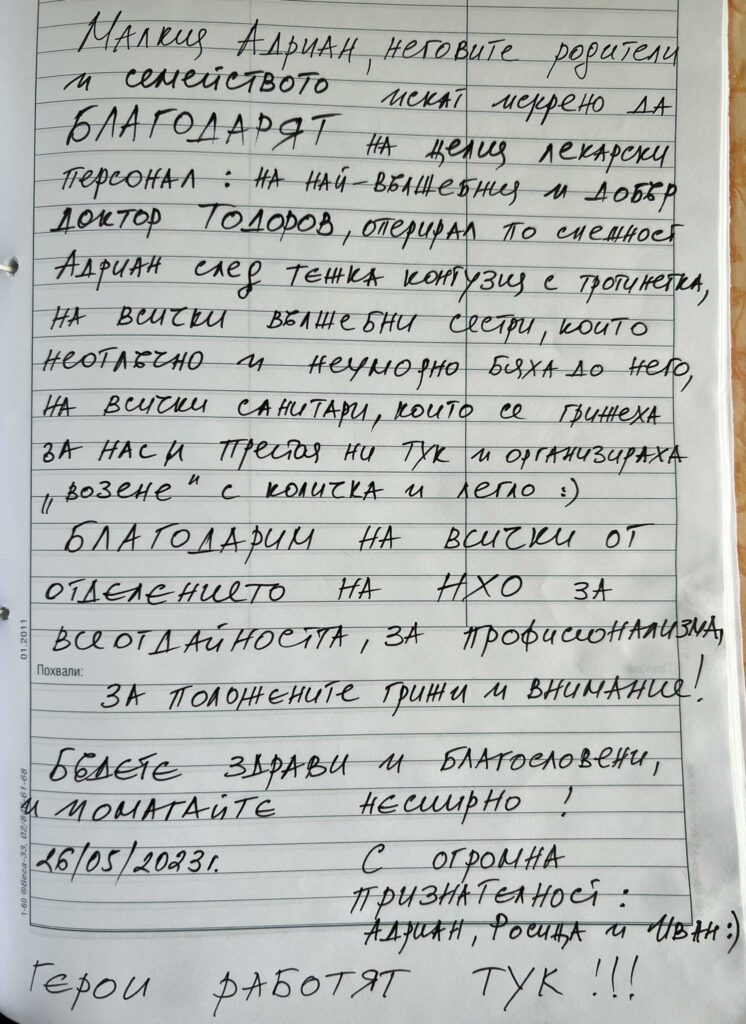 Малкия Адриан, неговите родители
и семейството искат искрено да
БЛАГОДАРЯТ на целия лекарски
персонал: на най-вълшебния и добър
доктор Тодоров, оперирал по спешност
Адриан след тежка контузия с тротинетка,
на всички вълшебни сестри, които
неотлъчно и неуморно бяха до него,
на всички санитари, които се грижеха
за нас и престоя ни тук и организираха
„возене" с количка и легло :)
БЛАГОДАРИМ на всички от
отделението на НХО за
всеотдайността, за професионализма,
Похвали:
за положените грижи и внимание!
Бъдете здрави и благословени,
и помагайте несширно!
26/05/2023г. С огромна
признателност:
Адриан, Росица и Иван :)
Герои работят тук!!!
01.2011